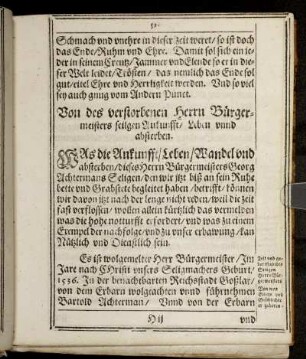 Schmach vnd vnehre in dieser Zeit weret / so ist doch
das Ende / Ruhm vnd Ehre. Damit sol sich ein je-
der in seinem Creutz / Jammer vnd Elende so er in die-
ser Welt leidet / Trösten / das nemlich das Ende sol
gut / eitel Ehre vnd Herrligkeit werden. Vnd so viel
sey auch gnug vom Andern Punct.
Von des verstorbenen Herrn Bürger-
meisters seligen Ankunfft / Leben vnnd
absterben.
WAs die Ankunfft / Leben / Wandel vnd
absterben / dieses Herrn Bürgermeisters Georg
Achtermans Seligen / den wir jtzt biß an sein Ruhe
bette vnd Grabstete begleitet haben / betrifft / können
wir davon jtzt nach der lenge nicht reden / weil die zeit
fast verflossen / wollen allein kürtzlich das vermelden
was die hohe notturfft erfordert / vnd was zu einem
Exempel der nachfolge / vnd zu vnser erbawung / kan
Nützlich vnd Dienstlich sein.
Es ist wolgemelter Herr Bürgermeister / Im
Jare nach Christi vnsers Seligmachers Geburt /
1536. In der benachbarten Reichsstadt Goßlar /
von dem Erbarn wolgeachten vnnd fürnehmen
Bartold Achterman / Vnnd von der Erbarn
H iij
vnd